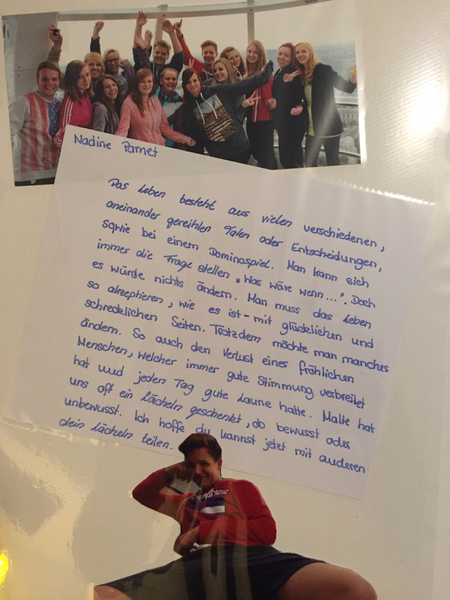 Nadine Pamet
Das Leben besteht aus vielen verschiedenen,
aneinander gereihten Taten oder Entscheidungen,
sowie bei einem Dominospiel. Man kann sich
immer die Frage stellen „Was wäre wenn...". Doch
es würde nichts ändern. Man muss das Leben
so akzeptieren, wie es ist - mit glücklichen und
schrecklichen Seiten. Trotzdem möchte man manches
ändern. So auch den Verlust eines fröhlichen
Menschen, welcher immer gute Stimmung verbreitet
hat und jeden Tag gute Laune hatte. Malte hat
uns oft ein Lächeln geschenkt, ob bewusst oder
unbewusst. Ich hoffe du kannst jetzt mit anderen
dein Lächeln teilen.